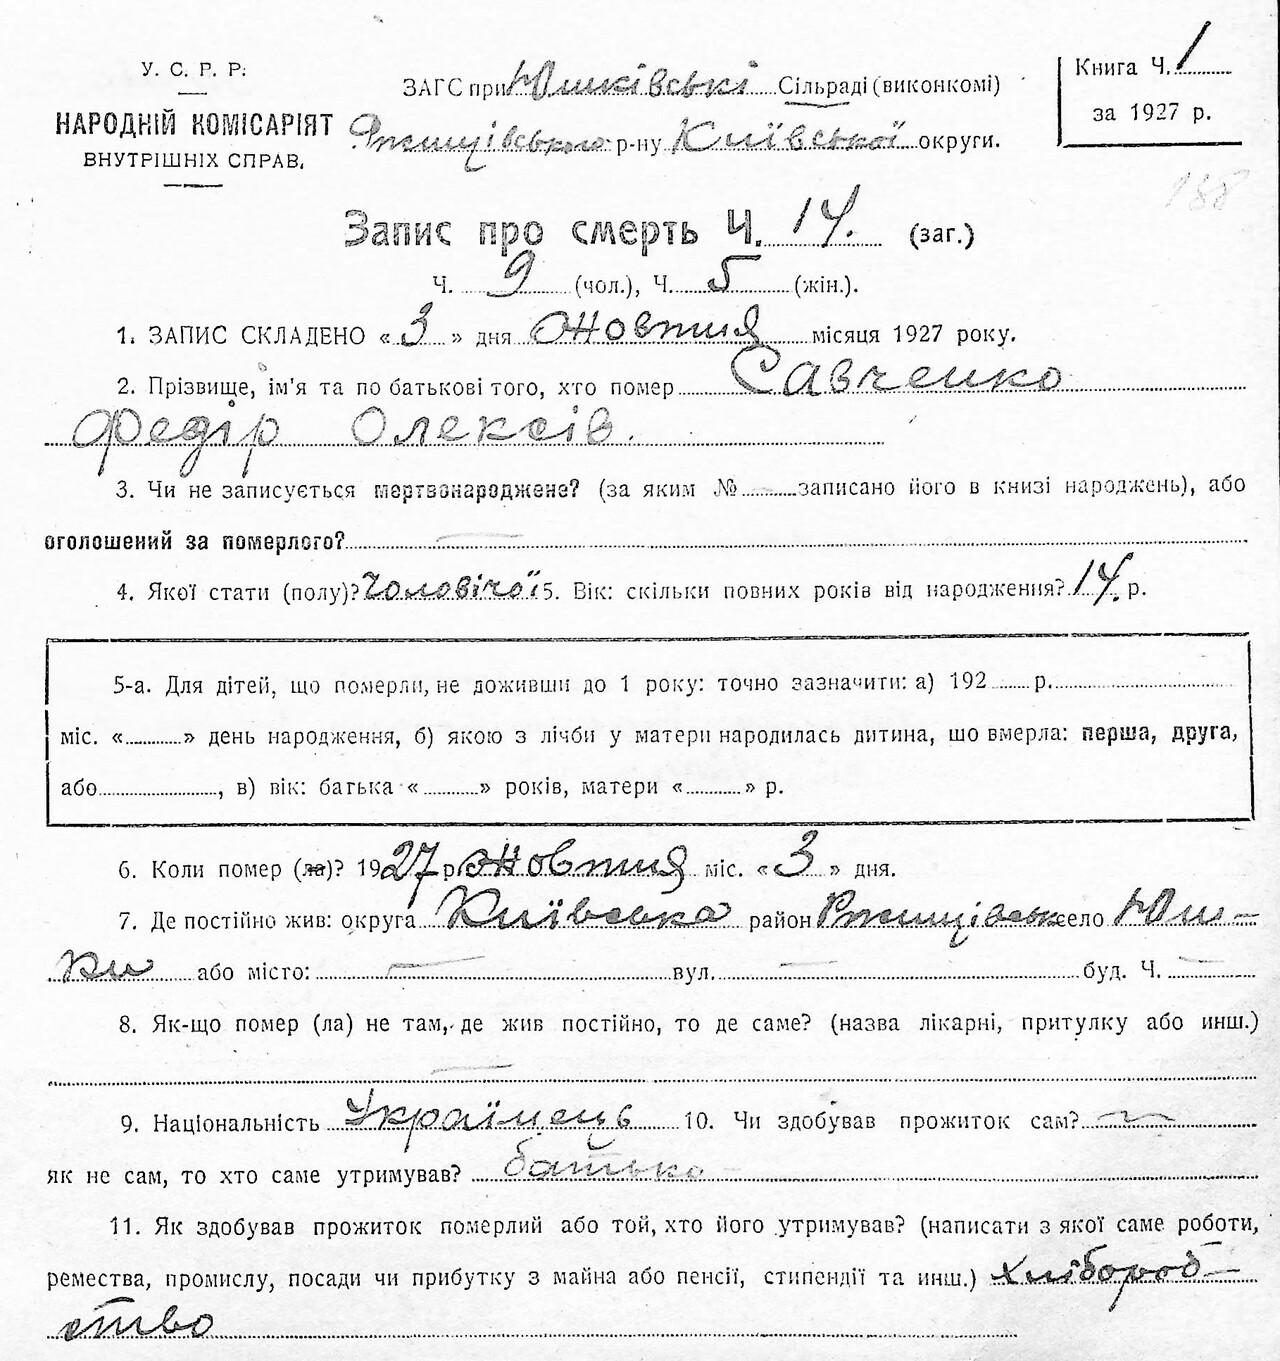 У. С. Р. Р.
НАРОДНІЙ КОМІСАРІЯТ
ВНУТРІШНІХ СПРАВ.
ЗАГС при Юшківські Сільраді (виконкомі)
Ржищівського р-ну Київської округи.
Книга Ч. 1
за 1927 р.
188
Запис про смерть Ч. 14. (заг.)
Ч. 9 (чол.), Ч. 5 (жін.).
1. ЗАПИС СКЛАДЕНО « 3 » дня жовтня місяця 1927 року.
2. Прізвище, ім'я та по батькові того, хто помер Савченко
Федір Олексів.
3. Чи не записується мертвонароджене? (за яким № — записано його в книзі народжень), або
оголошений за померлого? —
4. Якої стати (полу)? Чоловічої 5. Вік: скільки повних років від народження? 14. р.
5-а. Для дітей, що померли, не доживши до 1 року: точно зазначити: а) 192 р.
міс. « » день народження, б) якою з лічби у матери народилась дитина, що вмерла: перша, друга,
або , в) вік: батька « » років, матери « » р.
6. Коли помер (ла)? 1927 р. жовтня міс. « 3 » дня.
7. Де постійно жив: округа Київська район Ржищівськ село Юш-
ки або місто: — вул. — буд. Ч. —
8. Як-що помер (ла) не там, де жив постійно, то де саме? (назва лікарні, притулку або инш.)
—
9. Національність Українець 10. Чи здобував прожиток сам? —
як не сам, то хто саме утримував? батько
11. Як здобував прожиток померлий або той, хто його утримував? (написати з якої саме роботи,
ремества, промислу, посади чи прибутку з майна або пенсії, стипендії та инш.) хлібороб-
ство